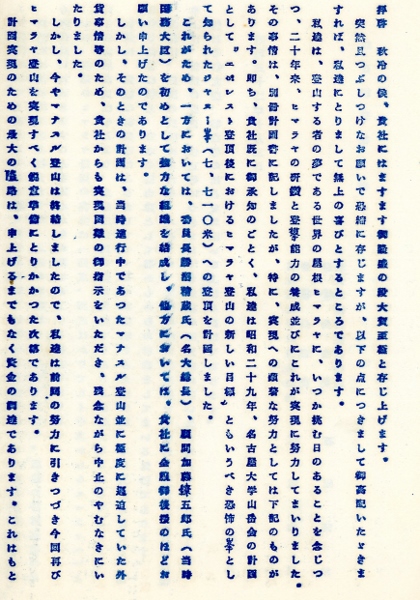 拝啓　秋冷の候、貴社にはますます御隆盛の段大賀至極と存じ上げます。
突然且つぶしつけなお願いで恐縮に存じますが、以下の点につきまして御高配いただきま
すれば、私達にとりまして無上の喜びとするところであります。
私達は、登山する者の夢である世界の屋根ヒマラヤに、いつか挑む日のあることを念じつ
つ、二十年来、ヒマラヤの研鑽と登攀能力の養成並びにこれが実現に努力してまいりました。
その事情は、別冊計画書に記しましたが、特に、実現への顕著な努力としては下記のものが
あります。即ち、貴社既に御承知のごとく、私達は昭和二十九年、名古屋大学山岳会の計画
として〃エボレスト登頂後におけるヒマラヤ登山の新しい目標〃ともいうべき恐怖の峯とし
て知られたジャヌー峯（七、七一〇米）への登頂を計画しました。
これがため、一方においては、委員長勝沼精蔵氏（名大総長）、顧問加藤鐐五郎氏（当時
国務大臣）を初めとして強力な組織を結成し、他方においては、貴社に金銭御後援のほどお
願い申上げたのであります。
しかし、そのときの計画は、当時進行中であつたマナスル登山並に極度に逼迫していた外
貨事情等のため、貴社からも実現困難の御指示をいただき、残念ながら中止のやむなきにい
たりました。
しかし、今やマナスル登山は終結しましたので、私達は前回の努力に引きつづき今回再び
ヒマラヤ登山を実現すべく鋭意準備にとりかかつた次第であります。
計画実現のための最大の隘路は、申上げるまでもなく資金の調達であります。これはもと